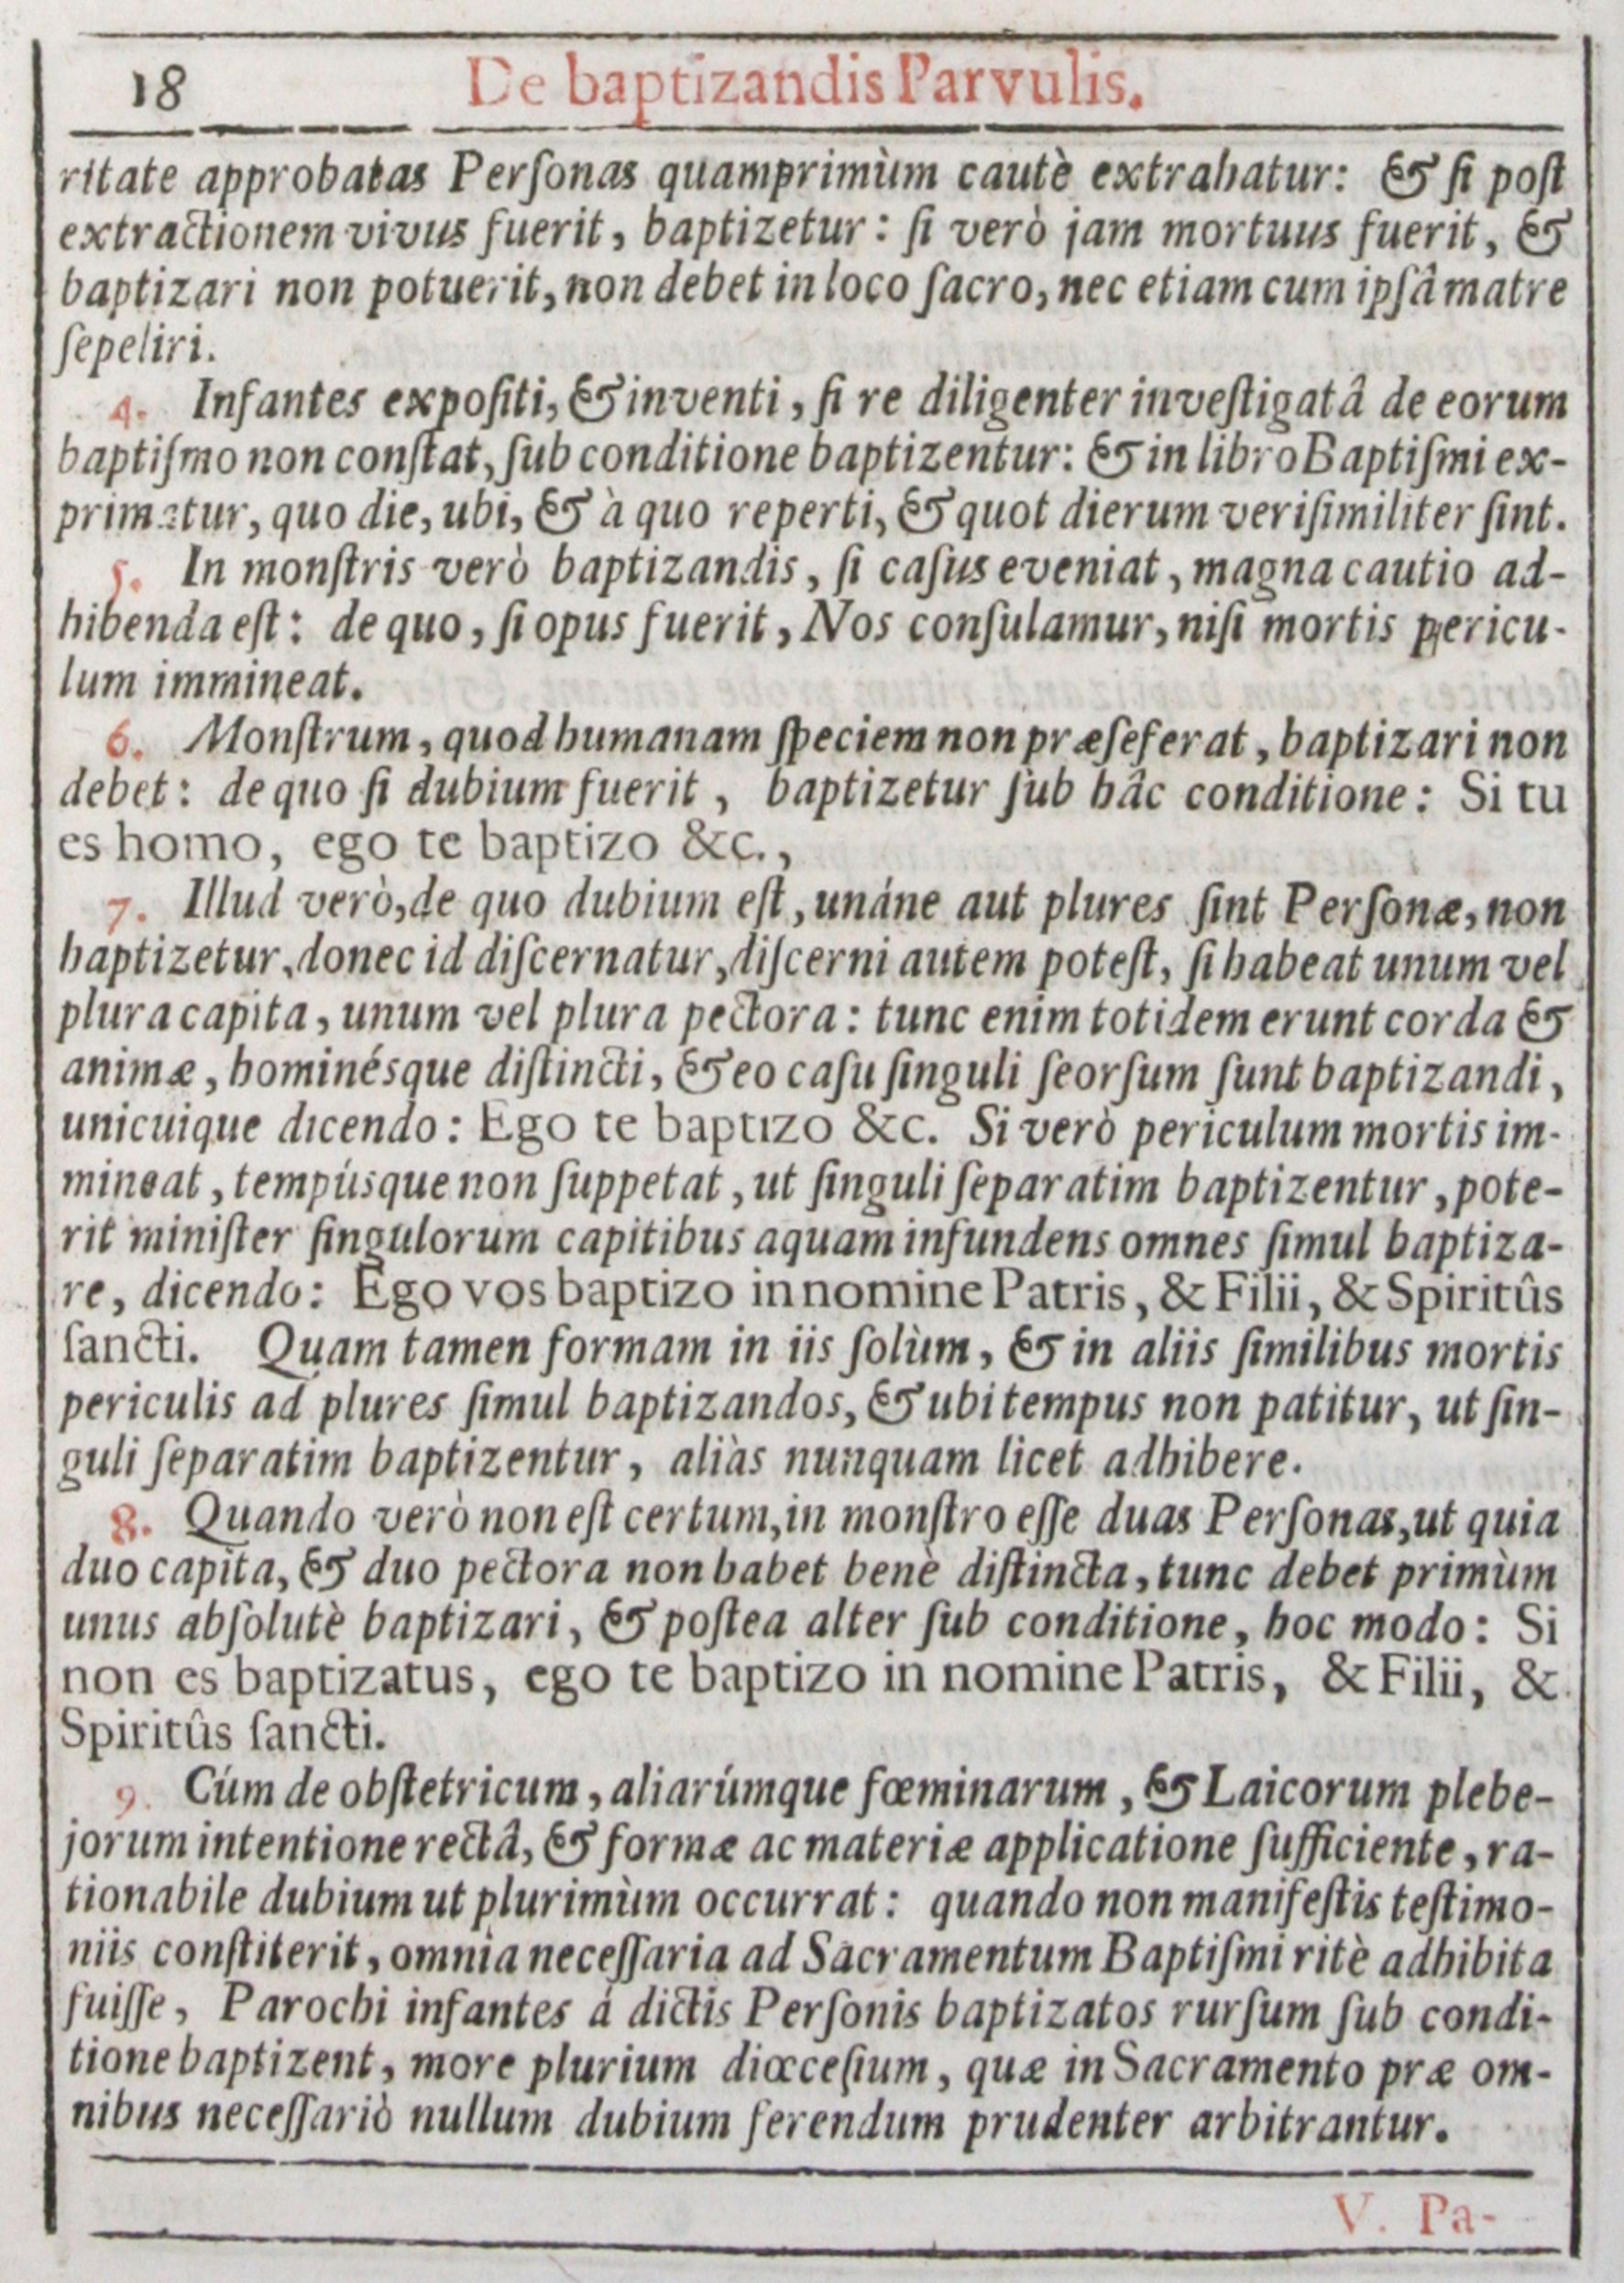 18 De baptizandis Parvulis.
ritate approbatas Perſonas quamprimùm cautè extrahatur: & ſi poſt
extractionem vivus fuerit, baptizetur: ſi verò jam mortuus fuerit, &
baptizari non potuerit, non debet in loco ſacro, nec etiam cum ipſâ matre
ſepeliri.
4. Infantes expoſiti, & inventi, ſi re diligenter inveſtigatâ de eorum
baptiſmo non conſtat, ſub conditione baptizentur: & in libro Baptiſmi ex-
primatur, quo die, ubi, & à quo reperti, & quot dierum veriſimiliter ſint.
5. In monſtris verò baptizandis, ſi caſus eveniat, magna cautio ad-
hibenda eſt: de quo, ſi opus fuerit, Nos conſulamur, niſi mortis pericu-
lum immineat.
6. Monſtrum, quod humanam ſpeciem non præſeferat, baptizari non
debet: de quo ſi dubium fuerit, baptizetur ſub hâc conditione: Si tu
es homo, ego te baptizo &c.,
7. Illud verò, de quo dubium eſt, unáne aut plures ſint Perſonæ, non
baptizetur, donec id diſcernatur, diſcerni autem poteſt, ſi habeat unum vel
plura capita, unum vel plura pectora: tunc enim totidem erunt corda &
animæ, hominésque diſtincti, & eo caſu ſinguli ſeorſum ſunt baptizandi,
unicuique dicendo: Ego te baptizo &c. Si verò periculum mortis im-
mineat, tempúsque non ſuppetat, ut ſinguli ſeparatim baptizentur, pote-
rit miniſter ſingulorum capitibus aquam infundens omnes ſimul baptiza-
re, dicendo: Ego vos baptizo in nomine Patris, & Filii, & Spiritûs
ſancti. Quam tamen formam in iis ſolùm, & in aliis ſimilibus mortis
periculis ad plures ſimul baptizandos, & ubi tempus non patitur, ut ſin-
guli ſeparatim baptizentur, aliàs nunquam licet adhibere.
8. Quando verò non eſt certum, in monſtro eſſe duas Perſonas, ut quia
duo capita, & duo pectora non habet benè diſtincta, tunc debet primùm
unus abſolutè baptizari, & poſtea alter ſub conditione, hoc modo: Si
non es baptizatus, ego te baptizo in nomine Patris, & Filii, &
Spiritûs ſancti.
9. Cúm de obſtetricum, aliarúmque fœminarum, & Laicorum plebe-
jorum intentione rectâ, & formæ ac materiæ applicatione ſufficiente, ra-
tionabile dubium ut plurimùm occurrat: quando non manifeſtis teſtimo-
niis conſtiterit, omnia neceſſaria ad Sacramentum Baptiſmi ritè adhibita
fuiſſe, Parochi infantes á dictis Perſonis baptizatos rurſum ſub condi-
tione baptizent, more plurium diœceſium, quæ in Sacramento præ om-
nibus neceſſariò nullum dubium ferendum prudenter arbitrantur.
V. Pa-